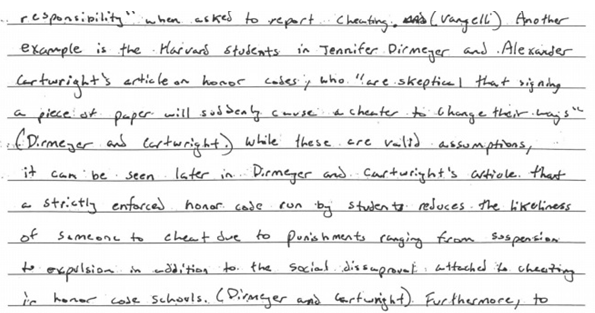 responsibility" when asked to report cheating. (Vangelli) Another
example is the Harvard students in Jennifer Dirmeyer and Alexander
Cartwright's article on honor codes, who "are skeptical that signing
a piece of paper will suddenly cause a cheater to change their ways"
(Dirmeyer and Cartwright.) While these are valid assumptions,
it can be seen later in Dirmeyer and Cartwright's article that
a strictly enforced honor code run by students reduces the likeliness
of someone to cheat due to punishments ranging from suspension
to expulsion in addition to the social dissaproval attached to cheating
in honor code schools. (Dirmeyer and Cartwright). Furthermore, to